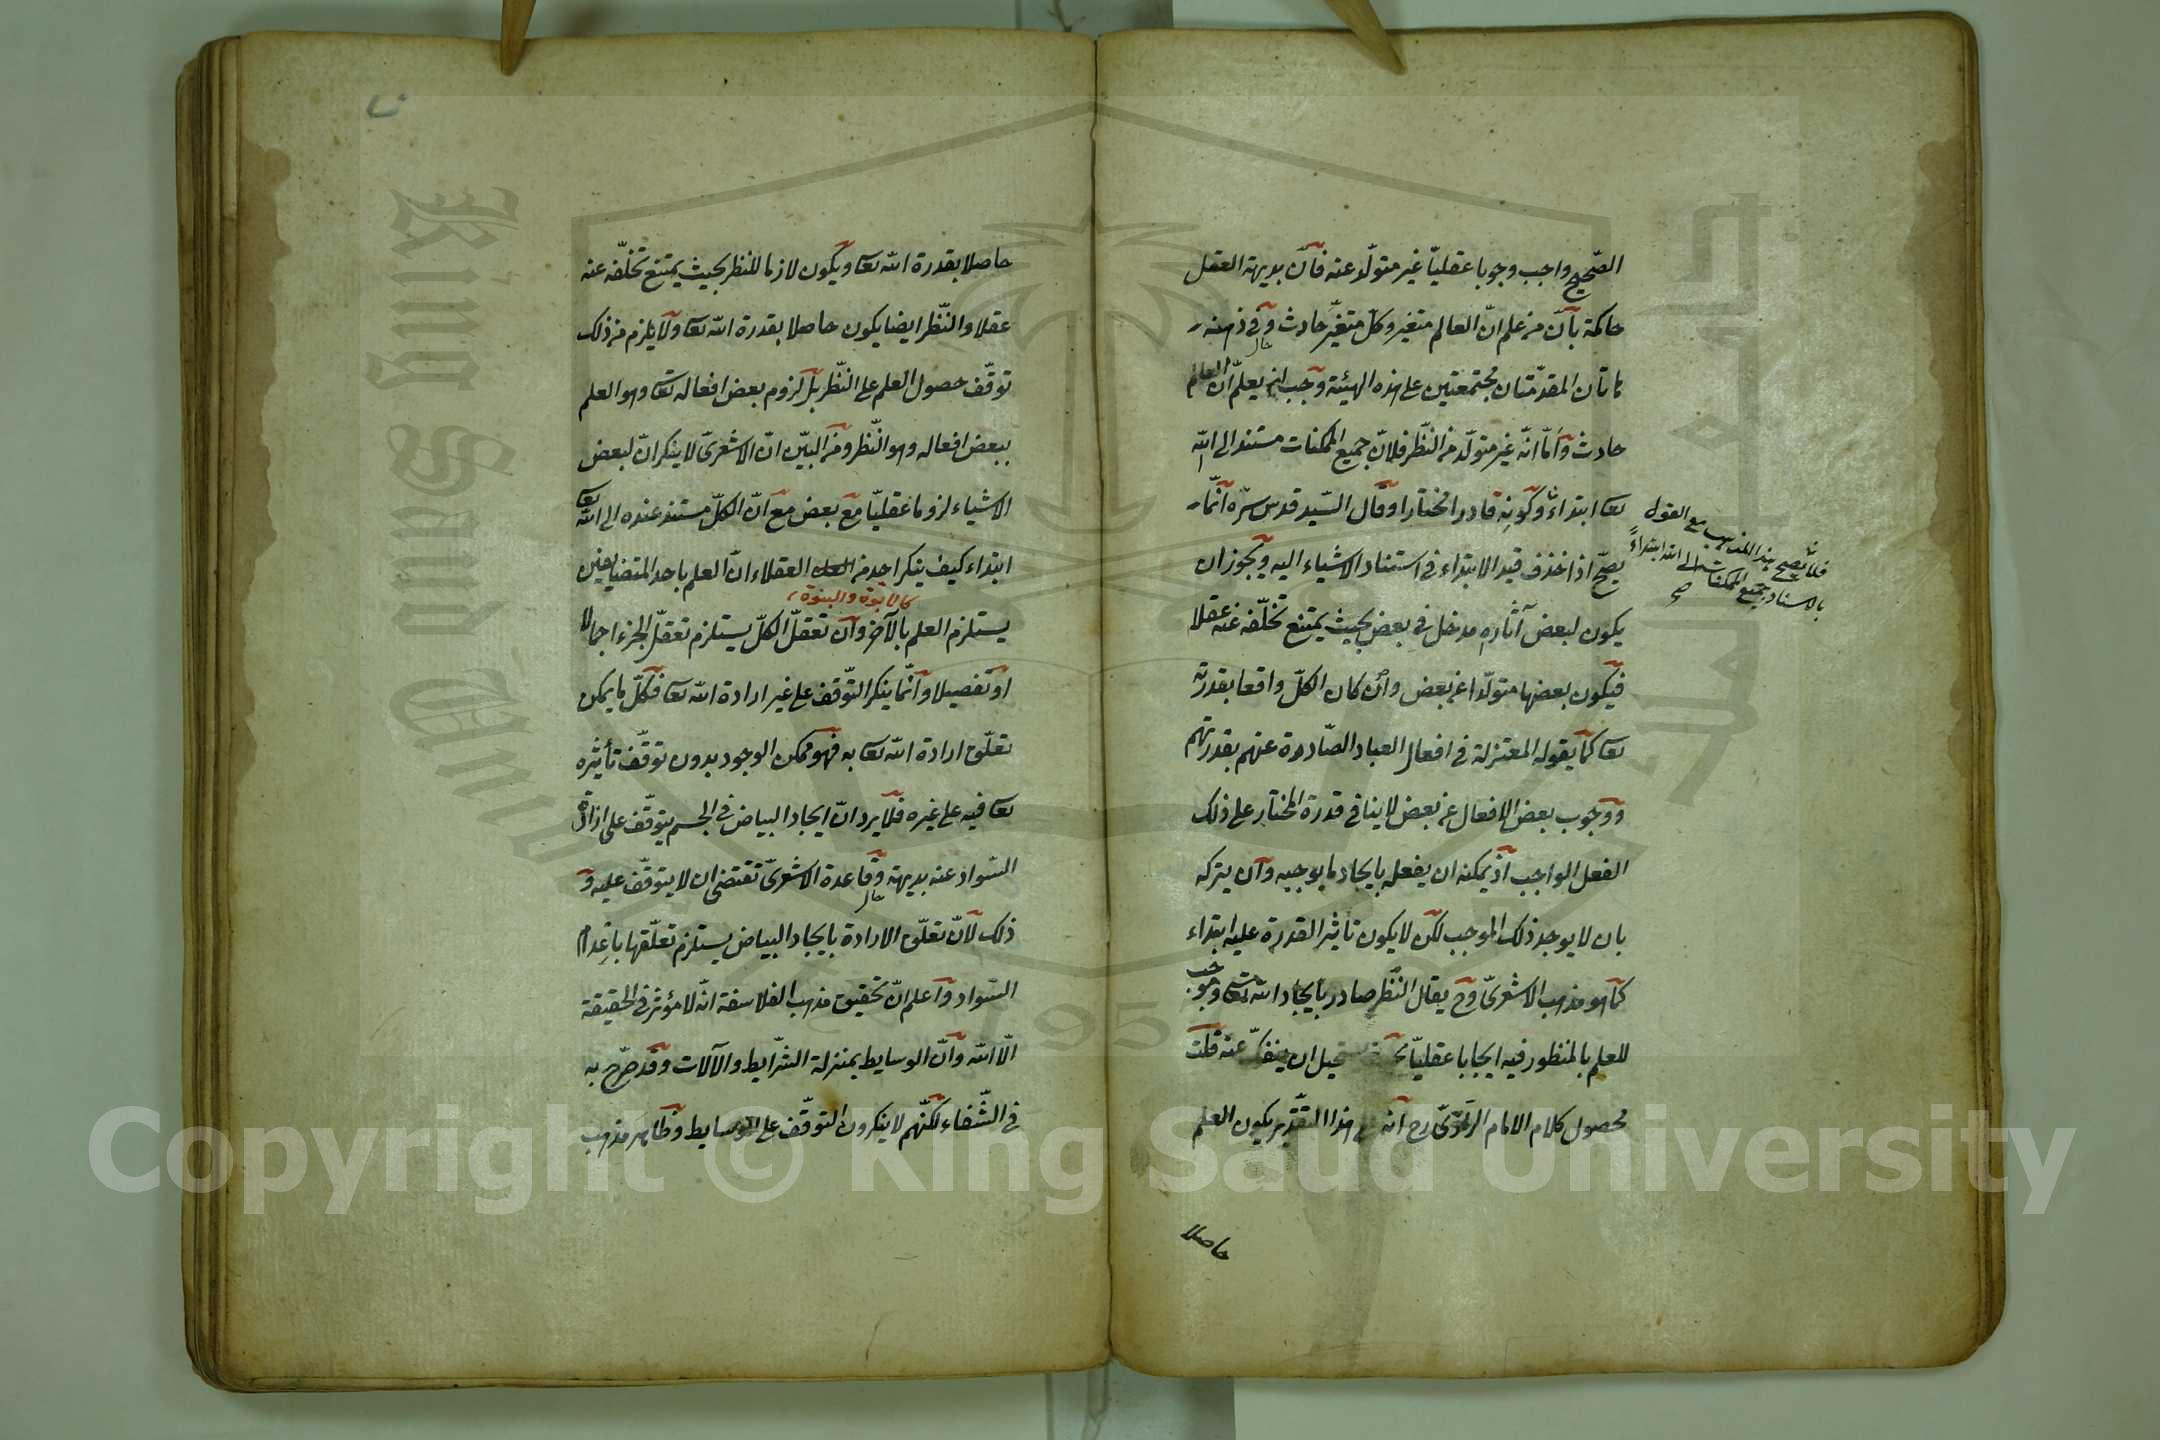 الصّحيح واجب وجوبا عقليّا غير متولّد عنه فانّ بديهة العقل
حاكمة بانّ من علم انّ العالم متغير وكل متغيّر حادث وفى ذهنه
هاتان المقدّمتان مجتمعتين على هذه الهيئة وجب ان يعلم انّ العالم
حادث وامّا انّه غير متولّد من النّظر فلانّ جميع الممكنات مستند الى اللّه
تعا ابتداء وكونه قادرا مختارا وقال السّيد قدس سرّه انّما
يصحّ اذا حذف قيد الابتداء فى استناد الاشياء اليه ويجوز ان
يكون لبعض آثاره مدخل فى بعض بحيث يمتنع تخلّفه عنه عقلا
فيكون بعضها متولّدا عن بعض وان كان الكلّ واقعا بقدرته
تعا كما يقوله المعتزلة فى افعال العباد الصّادرة عنهم بقدرتهم
ووجوب بعض الافعال عن بعض لا ينافى قدرة المختار على ذلك
الفعل الواجب اذ يمكنه ان يفعله بايجاد ما يوجبه وان يتركه
بان لا يوجد ذلك الموجب لكن لا يكون تأثير القدرة عليه ابتداء
كما هو مذهب الاشعرىّ وح يقال النّظر صادر بايجاد اللّه تعا وموجب
للعلم بالمنظور فيه ايجابا عقليّا بحيث يستحيل ان ينفكّ عنه قلت
محصول كلام الامام الرّازىّ رح انه على هذا التّقدير يكون العلم
حاصلا
فلا يصح هذا المذهب مع القول
باستناد جميع الممكنات الى الله ابتداءً
صح
حاصلا بقدرة اللّه تعا ويكون لازما للنظر بحيث يمتنع تخلّفه عنه
عقلا والنّظر ايضا يكون حاصلا بقدرة اللّه تعا ولا يلزم من ذلك
توقّف حصول العلم على النّظر بل لزوم بعض افعاله تعا وهو العلم
ببعض افعاله وهو النّظر ومن البيّن انّ الاشعرىّ لا ينكر انّ لبعض
الاشياء لزوما عقليّا مع بعض مع انّ الكلّ مستند عنده الى اللّه تعا
ابتداء كيف ينكر احد من العقلاء انّ العلم باحد المتضايفين
كالابوة والبنوة
يستلزم العلم بالآخر وانّ تعقلّ الكلّ يستلزم تعقلّ الجزء اجمالا
او تفصيلا وانّما ينكر التّوقف على غير ارادة اللّه تعا فكلّ ما يمكن
تعلّق ارادة اللّه تعا به فهو ممكن الوجود بدون توقّف تأثيره
تعا فيه على غيره فلا يرد انّ ايجاد البياض فى الجسم يتوقّف على ازالة
السّواد عنه بديهة وقاعدة الاشعرىّ تقتضى ان لا يتوقّف عليه و
ذلك لانّ تعلّق الارادة بايجاد البياض يستلزم تعلّقها باعدام
السّواد واعلم انّ تحقيق مذهب الفلاسفة انّه لا مؤثر فى الحقيقة
الّا اللّه وانّ الوسايط بمنزلة الشّرايط والآلات وقد صرّح به
فى الشّفاء لكنّهم لا ينكرون التوقّف على الوسايط وظاهر مذهب
Copyright © King Saud University